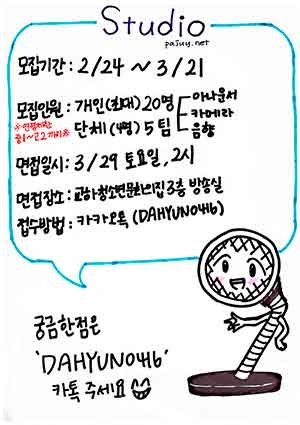 Studio
pajuy.net
모집기간 : 2/24 ~ 3/21
모집인원 : 개인(최대) 20명
단체 (4명) 5팀
아나운서
카메라
음향
※연령제한
중1~고2까지※
면접일시 : 3/29 토요일, 2시
면접장소 : 교하청소년문화의집 3층 방송실
접수방법 : 카카오톡 (DAHYUN0416)
궁금한점은
'DAHYUN0416'
카톡 주세요